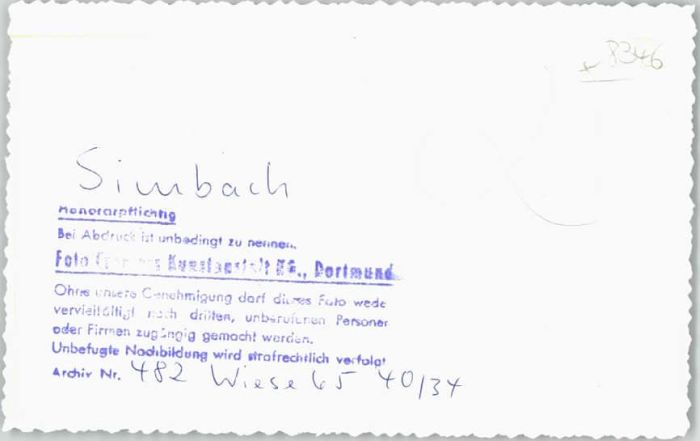 + 8346
Simbach
Honorarpflichtig
Bei Abdruck ist unbedingt zu nennen.
Foto Kunstanstalt KG., Dortmund
Ohne unsere Genehmigung darf dieses Foto wede
vervielfältigt noch dritten, unberufenen Personer
oder Firmen zugängig gemacht werden.
Unbefugte Nachbildung wird strafrechtlich verfolgt
Archiv Nr. 482 Wiese 65 40/34